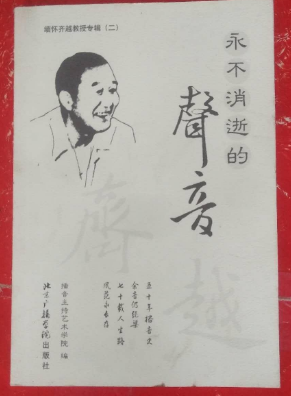 缅怀齐越教授专辑（二）
永不消逝的
聲音
齊越
五十年播音史
七十载人生路
风范永长存
播音主持艺术学院 编
北京广播学院出版社